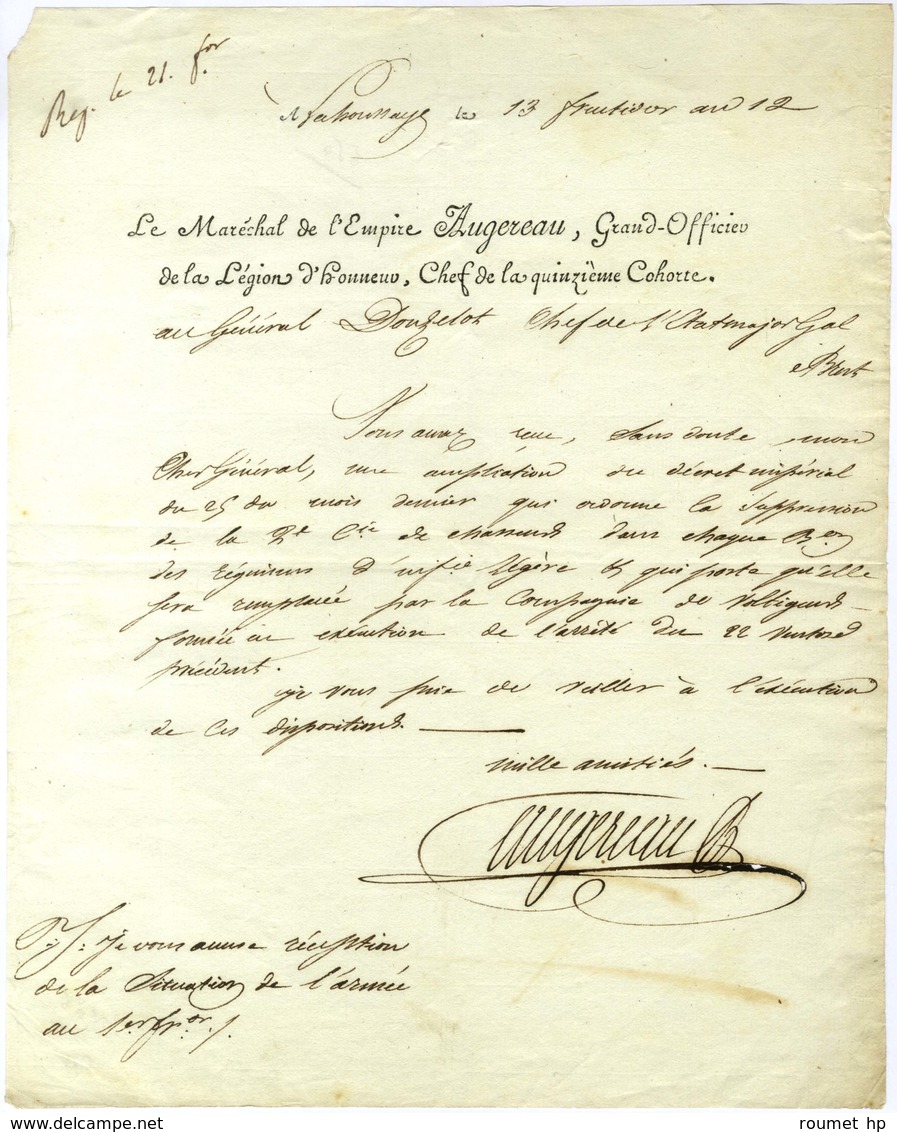 Reç. le 21. f.or
à Lahoussaye le 13 fructidor an 12
Le Maréchal de l'Empire Augereau, Grand-Officier
de la Légion d'honneur, Chef de la quinzième Cohorte.
au Général Donzelot Chef de l'Etatmajor Gal
à Brest
Vous avez reçu, sans doute, mon
Cher Général, une ampliation du décret impérial
du 25 du mois dernier qui ordonne la Suppression
de la 2e Cie de chasseurs dans chaque Bon
des régimens d'infie légère & qui porte qu'elle
sera remplacée par la Compagnie de Voltigeurs
formée en exécution de l'arrêté du 22 Ventose
précédent.
je vous prie de veiller à l'exécution
de ces dispositions.
mille amitiés.
augereau
P.S. je vous accuse réception
de la Situation de l'armée
au 1er fr.or
roumet hp